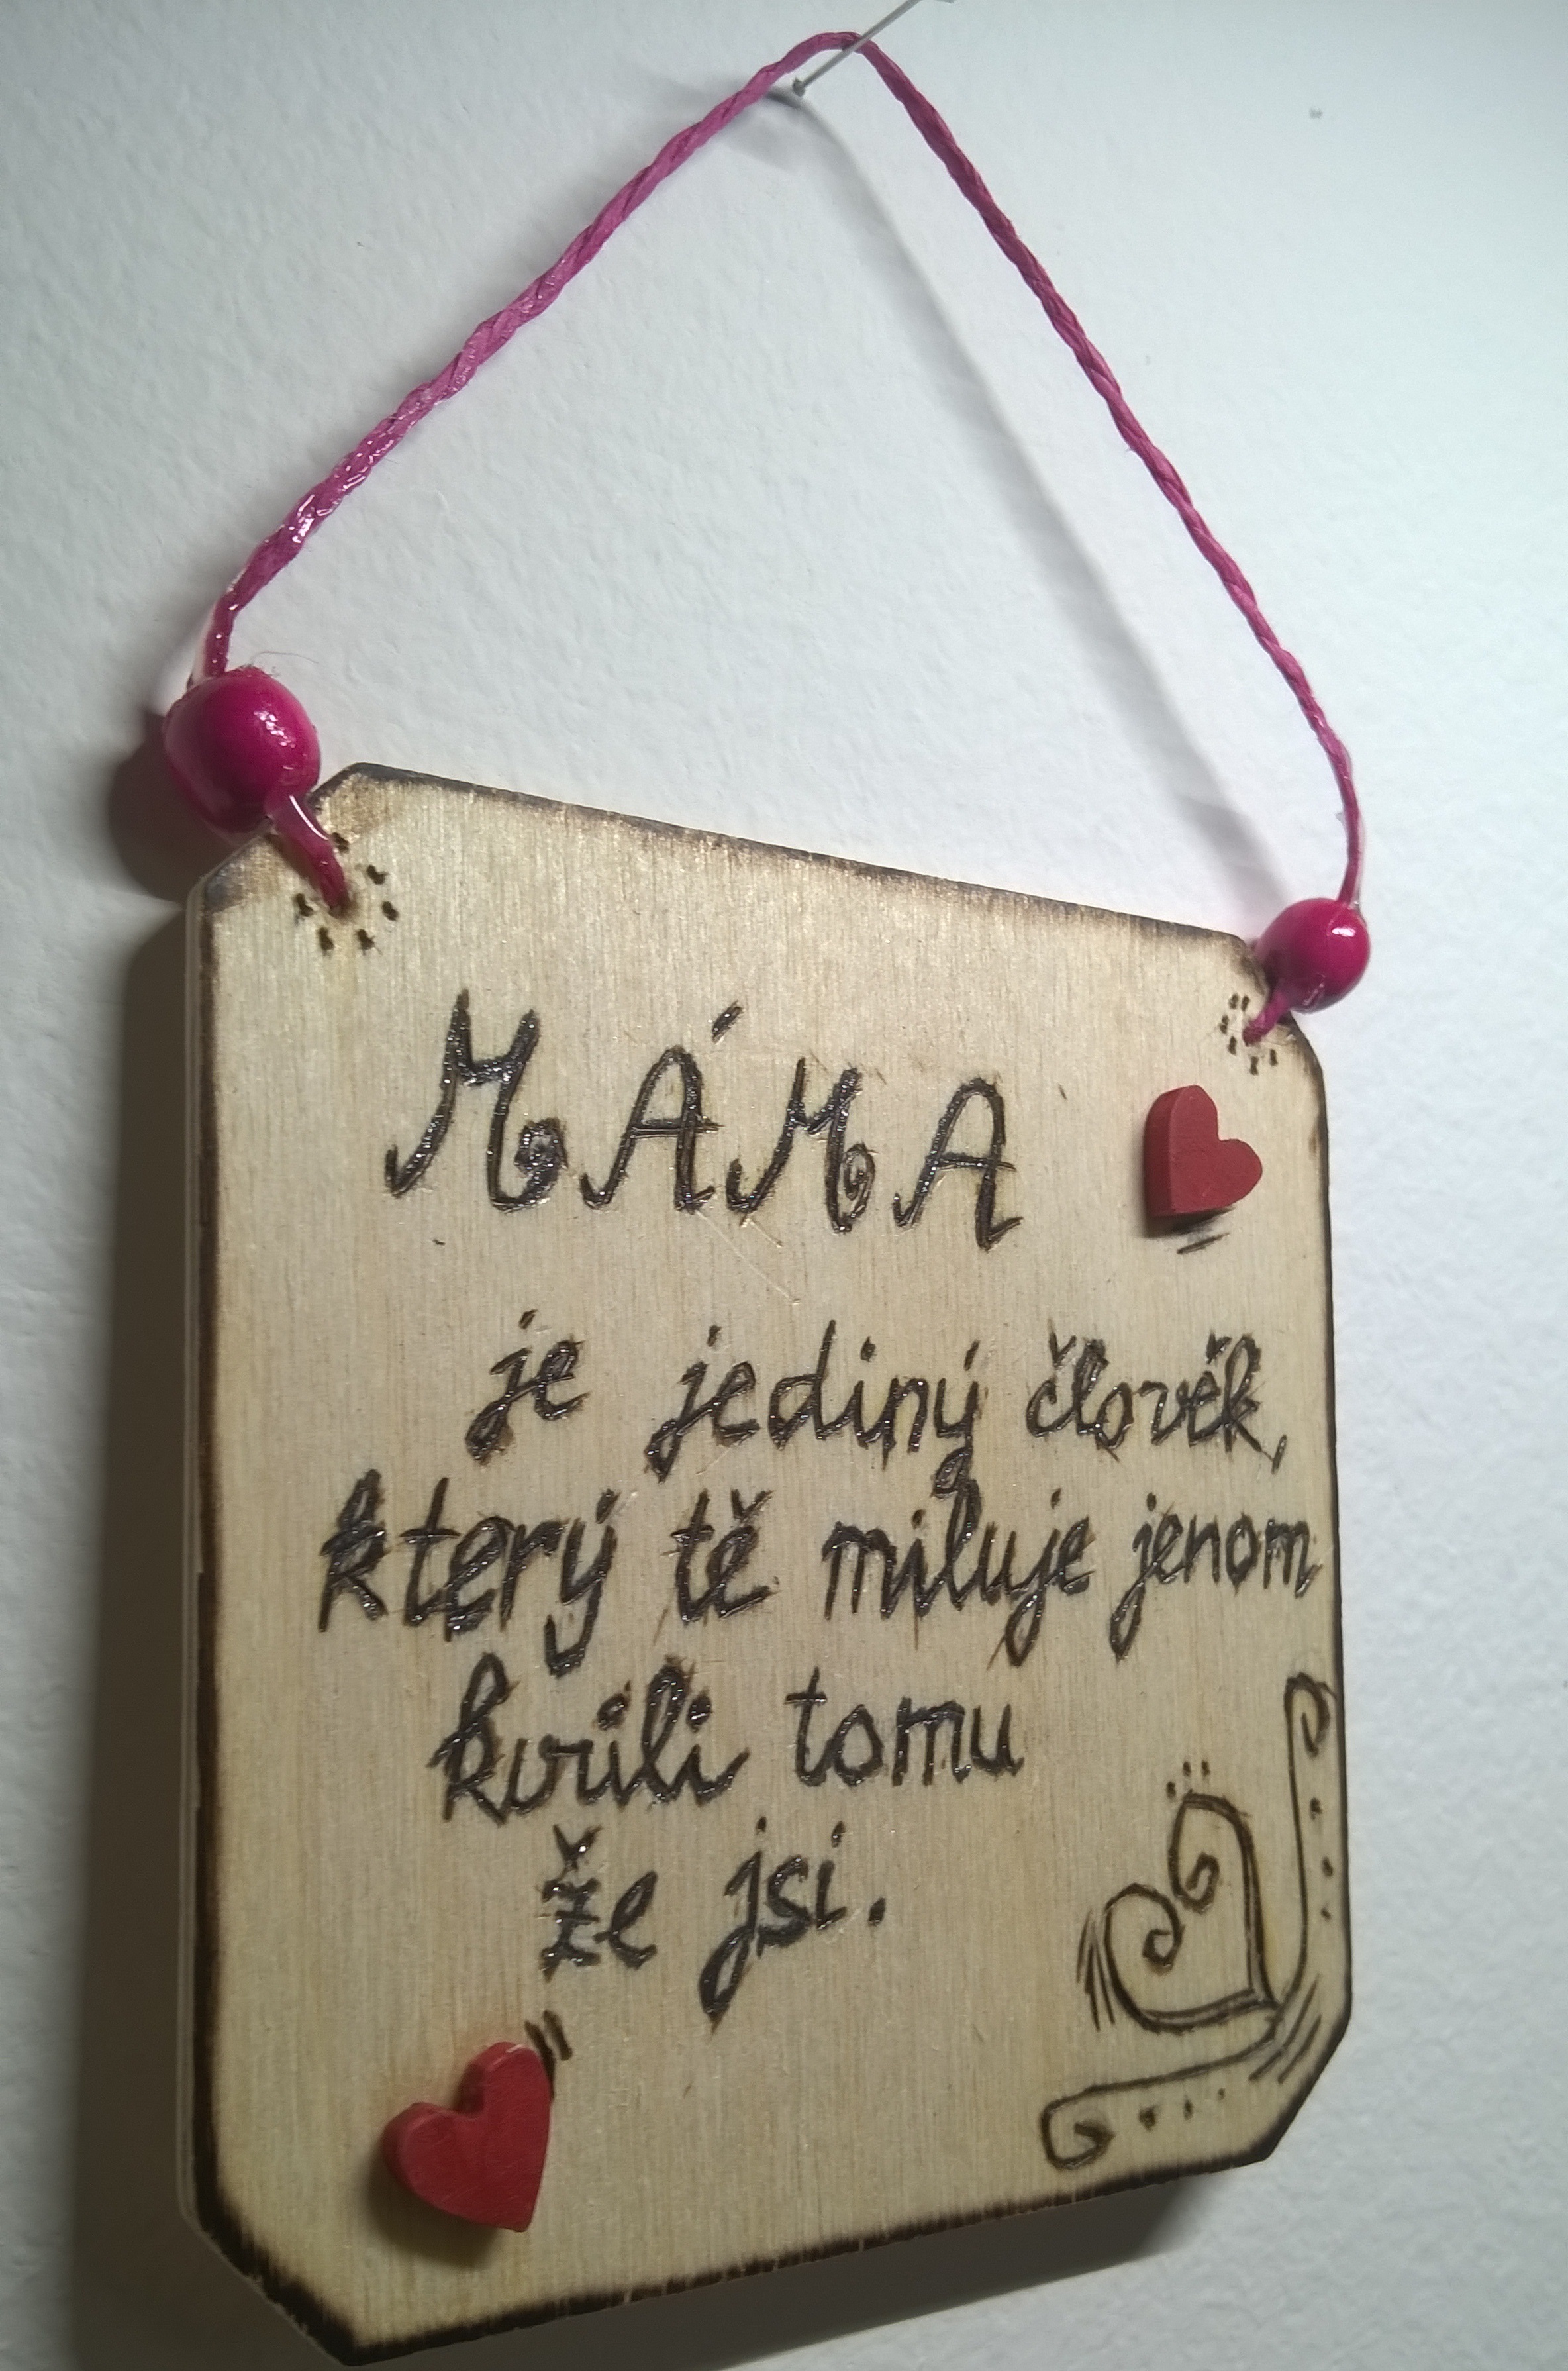 MÁMA
je jediný člověk,
který tě miluje jenom
kvůli tomu
že jsi.